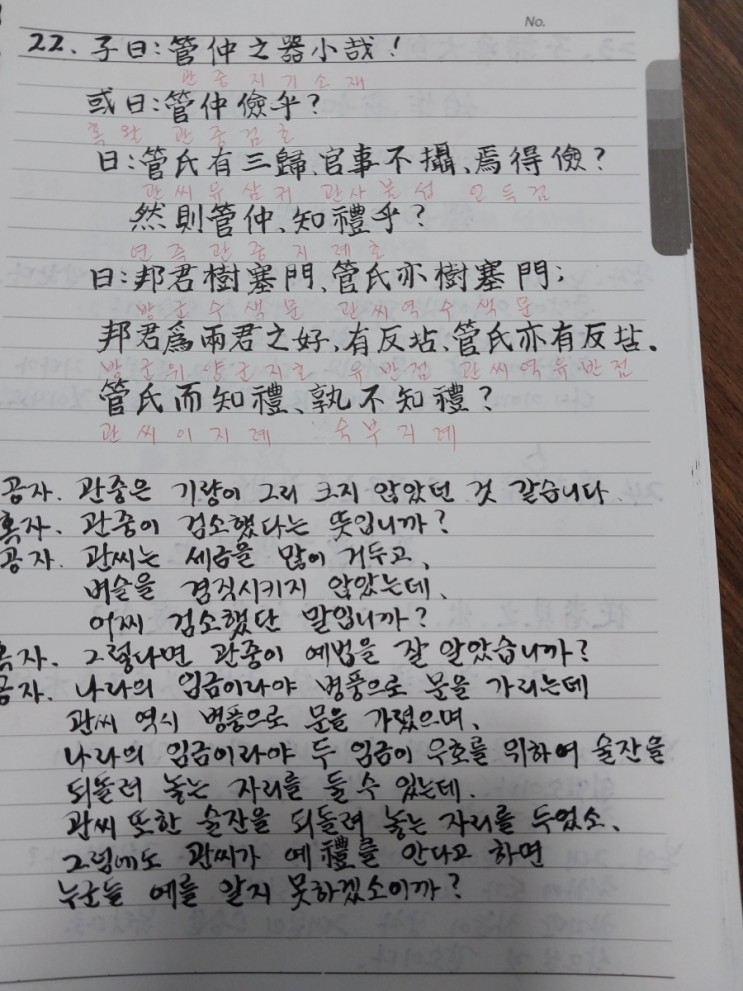 No.
22. 子曰:管仲之器小哉!
관중지기소재
或曰:管仲儉乎?
혹왈 관중검호
曰:管氏有三歸、官事不攝、焉得儉?
관씨유삼귀 관사불섭 언득검
然則管仲、知禮乎?
연즉관중지례호
曰:邦君樹塞門、管氏亦樹塞門;
방군수색문 관씨역수색문
邦君爲兩君之好、有反坫、管氏亦有反坫.
방군위양군지호 유반점 관씨역유반점
管氏而知禮、孰不知禮?
관씨이지례 숙부지례
공자. 관중은 기량이 그리 크지 않았던 것 같습니다.
혹자. 관중이 검소했다는 뜻입니까?
공자. 관씨는 세금을 많이 거두고,
벼슬을 겸직시키지 않았는데,
어찌 검소했단 말입니까?
혹자. 그렇다면 관중이 예법을 잘 알았습니까?
공자. 나라의 임금이라야 병풍으로 문을 가리는데
관씨 역시 병풍으로 문을 가렸으며,
나라의 임금이라야 두 임금이 우호를 위하여 술잔을
되돌려 놓는 자리를 둘 수 있는데,
관씨 또한 술잔을 되돌려 놓는 자리를 두었소,
그럼에도 관씨가 예禮를 안다고 하면
누군들 예를 알지 못하겠소이까?